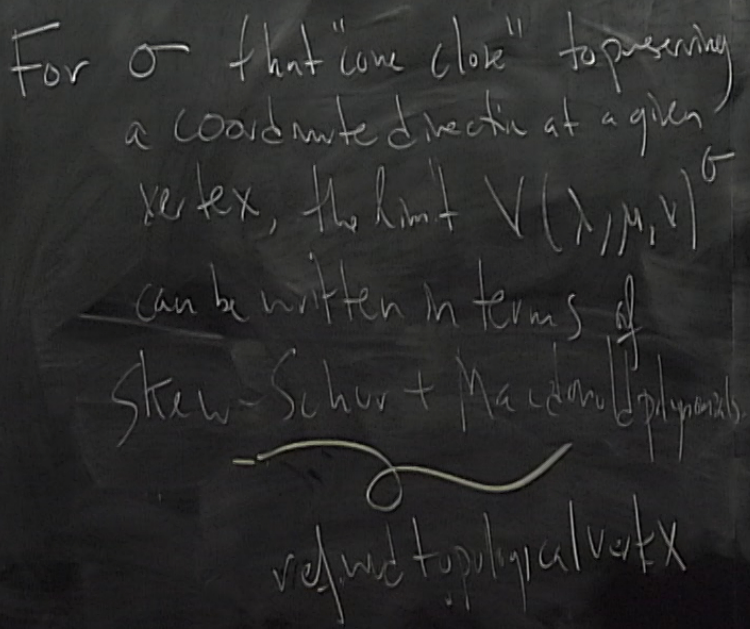 For σ that "come close" to preserving
a coordinate direction at a given
vertex, the limit V(λ, μ, ν)^σ
can be written in terms of
Skew-Schur + Macdonald polynomials
refined topological vertex